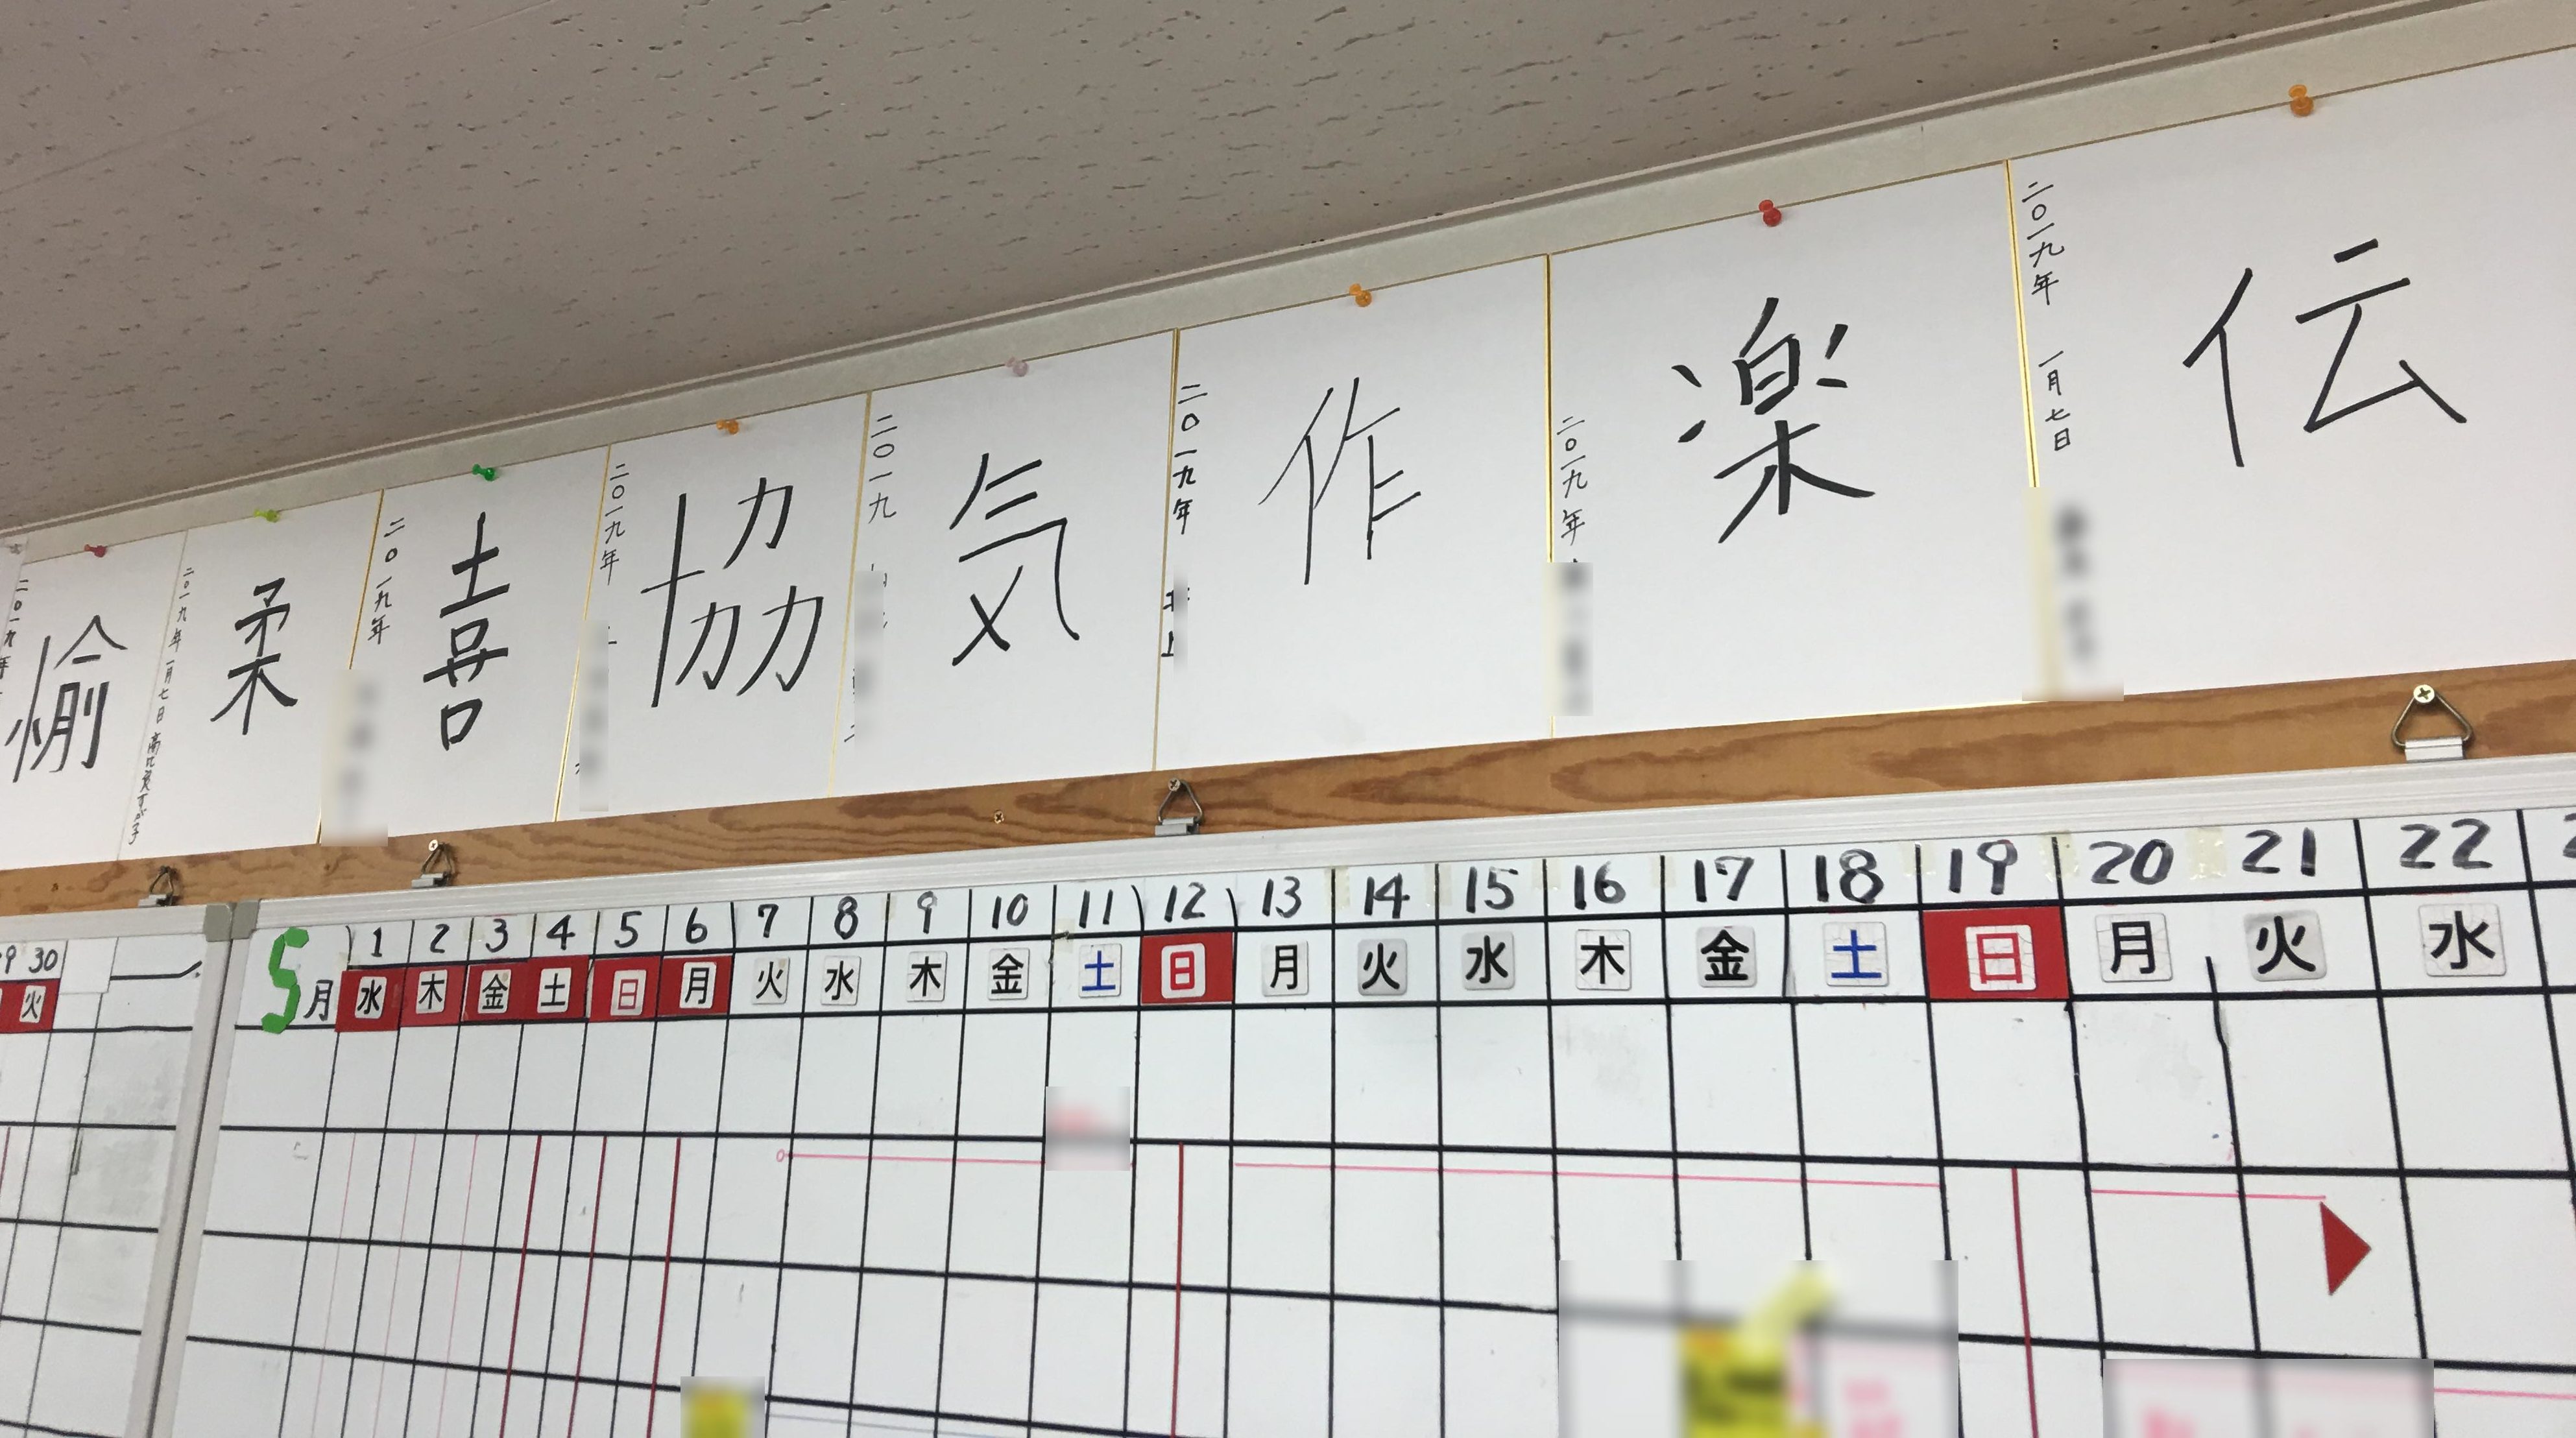 伝
二〇一九年 一月七日
楽
二〇一九年
作
二〇一九年
気
二〇一九
協
二〇一九年
喜
二〇一九年
柔
二〇一九年一月七日
愉
二〇一九年
30
火
5月
1 2 3 4 5 6 7 8 9 10 11 12 13 14 15 16 17 18 19 20 21 22
水 木 金 土 日 月 火 水 木 金 土 日 月 火 水 木 金 土 日 月 火 水